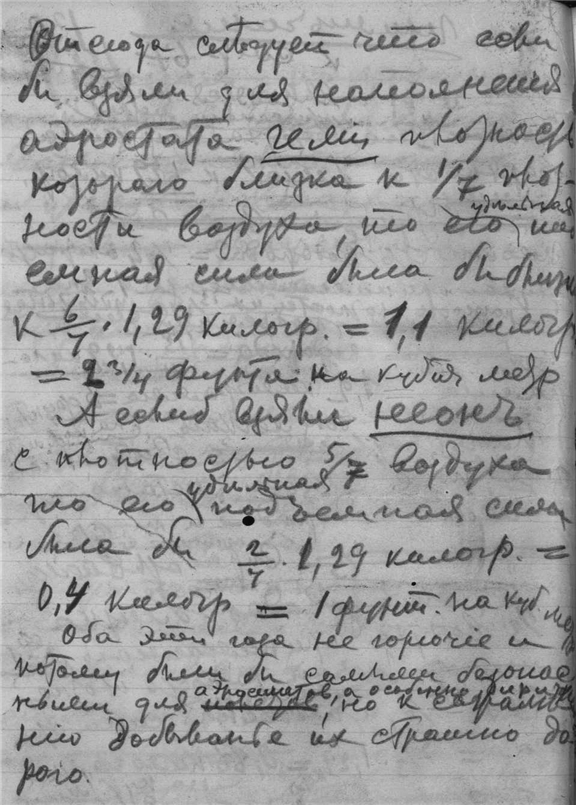 Отсюда следует что если
бы взяли для наполнения
аэростата гелій плотность
которого близка к 1/7 плот-
ности воздуха, то его удельная подъ-
емная сила была бы близка
к 6/7 · 1,29 килогр. = 1,1 килогр
= 2 3/4 фунта на кубич метр
А если б взяли неонъ
с плотностью 5/7 воздуха
то его удельная подъемная сила
была бы 2/7 · 1,29 килогр. =
0,4 килогр = 1 фунт. на куб. ме
Оба эти газа не горючіе и
потому были бы самыми безопас
ными для аэростатов, а особенно но к сожале
нію добыванье их страшно до
рого.